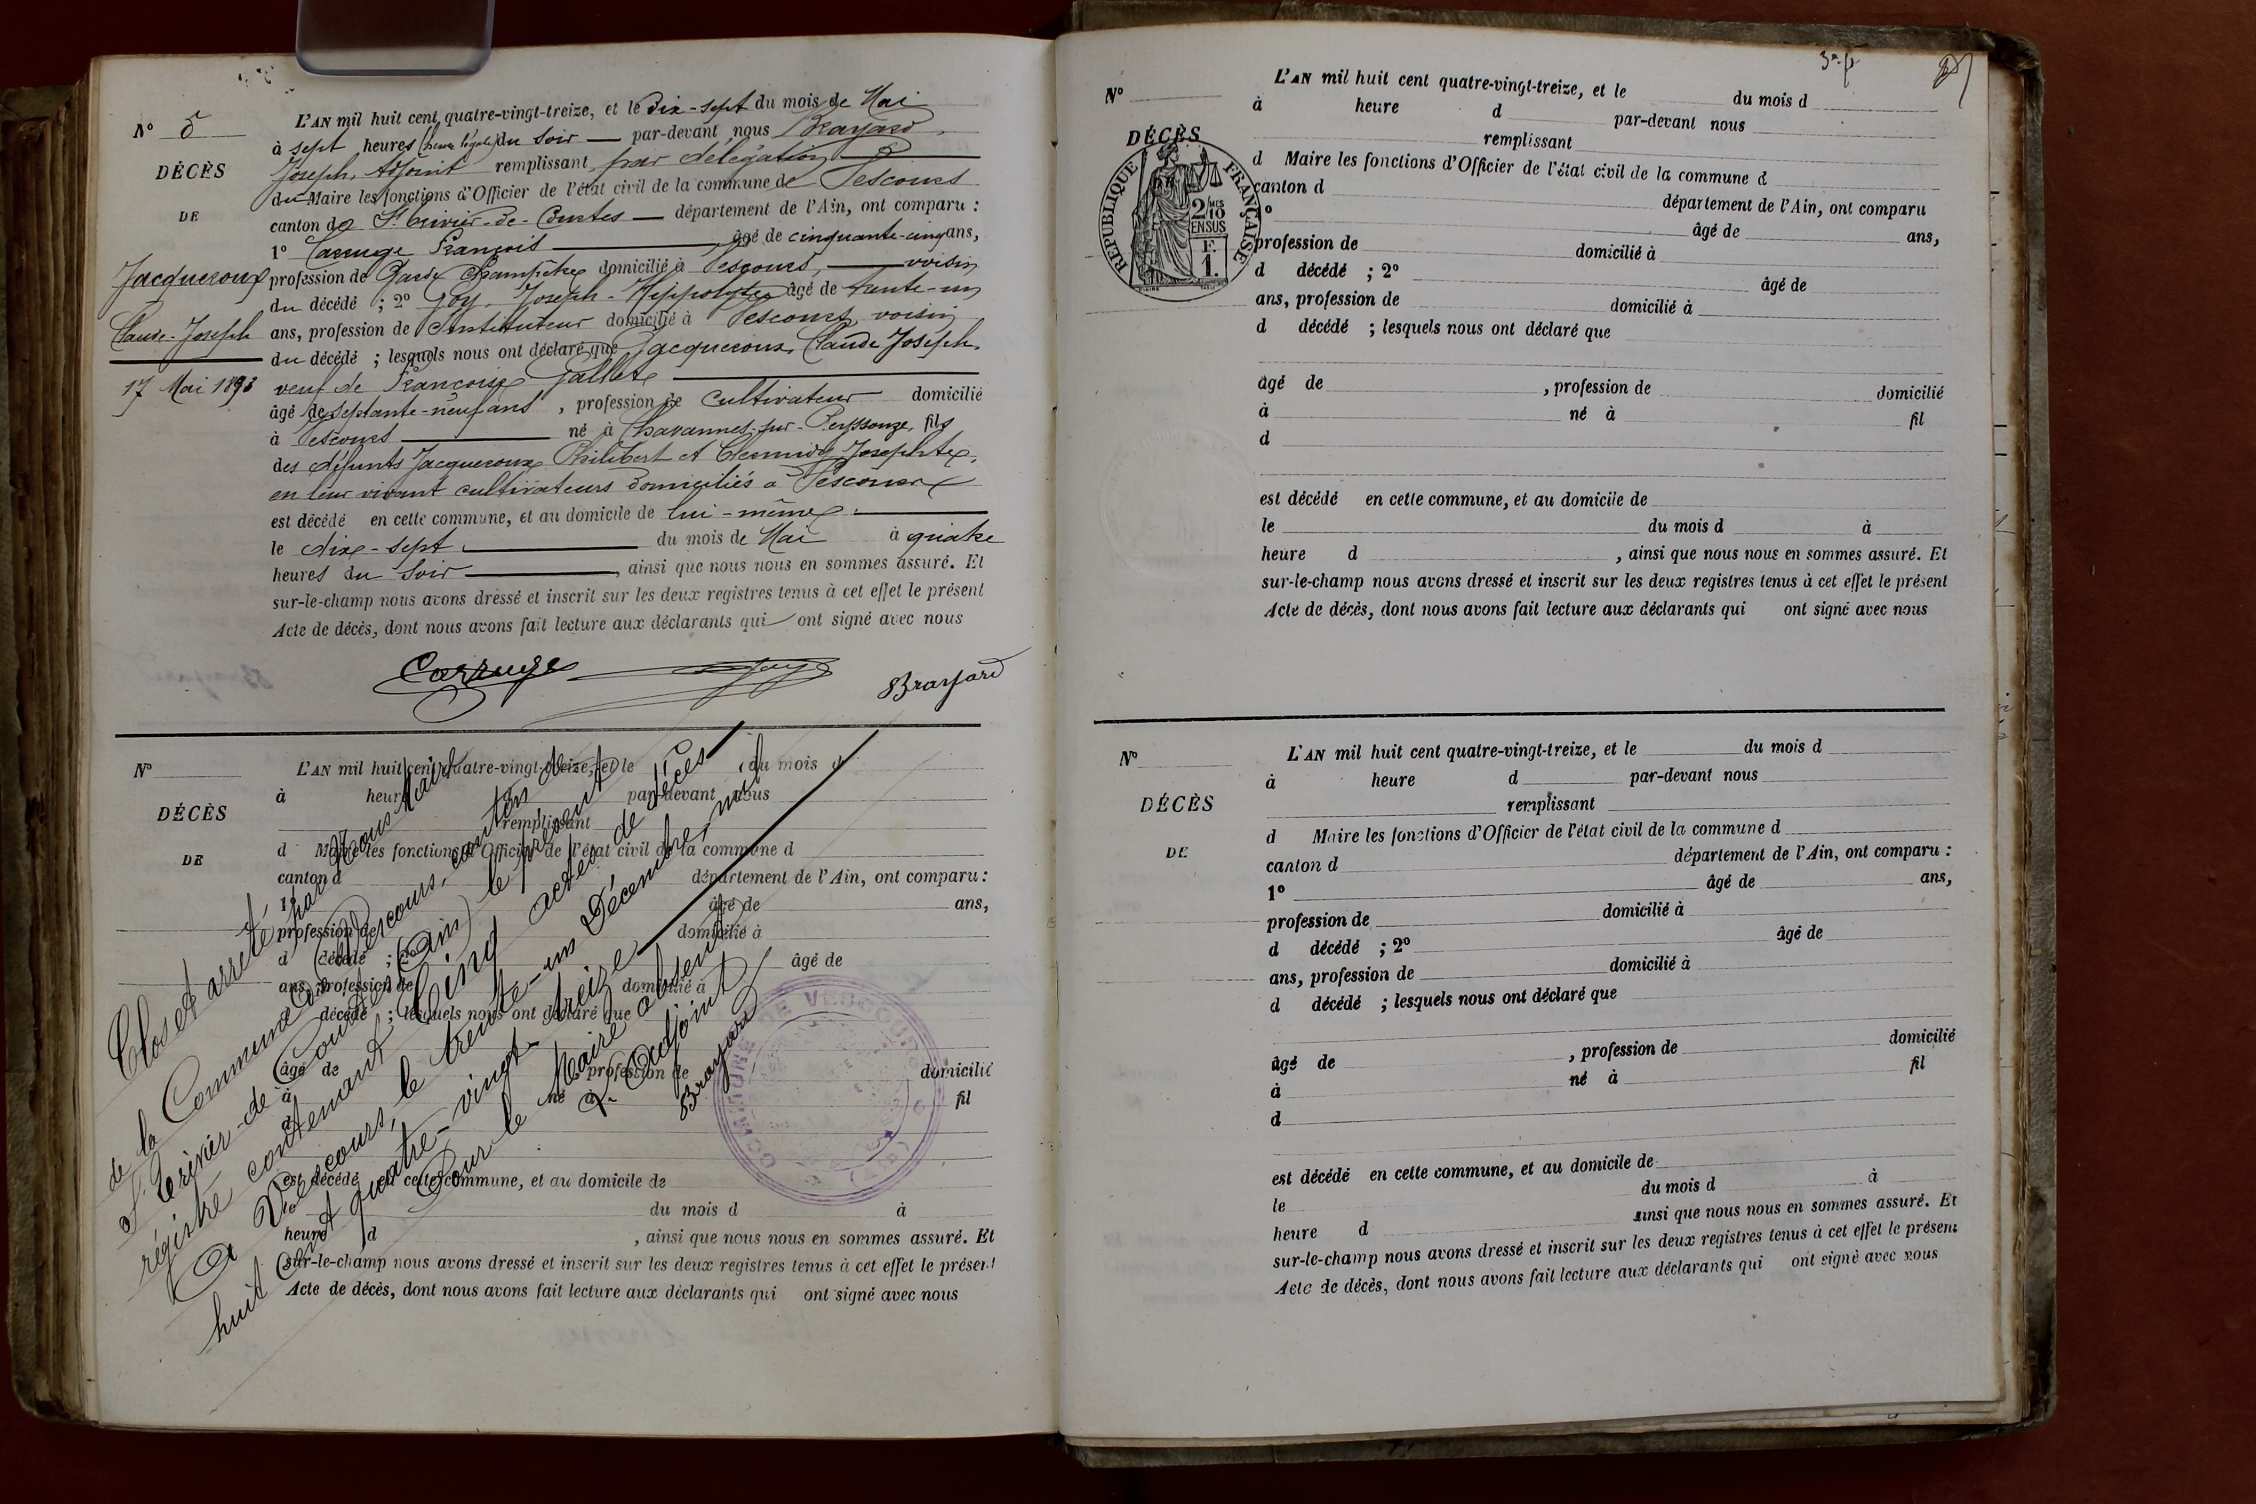 N° 5
DÉCÈS
DE
Jacqueroux
Claude-Joseph
17 Mai 1893
L'AN mil huit cent quatre-vingt-treize, et le Dix-sept du mois de Mai
à sept heures (heure légale) du soir par-devant nous Brayard
Joseph, Adjoint remplissant par délégation
du Maire les fonctions d'Officier de l'état civil de la commune de Vescours
canton de St Trivier-de-Courtes département de l'Ain, ont comparu :
1° Carruge François âgé de cinquante-cinq ans,
profession de Garde Champêtre domicilié à Vescours, voisin
du décédé ; 2° Goy, Joseph-Hippolyte âgé de trente-un
ans, profession de Instituteur domicilié à Vescours voisin
du décédé ; lesquels nous ont déclaré que Jacqueroux, Claude Joseph,
veuf de Françoise
âgé de septante-neuf ans , profession de Cultivateur domicilié
à Vescours né à Chavannes-sur-Reyssouze, fils
des défunts Jacqueroux Philibert et Josephte,
en leur vivant cultivateurs domiciliés à Vescours
est décédé en cette commune, et au domicile de lui-même
le dix-sept du mois de Mai à quatre
heures du soir , ainsi que nous nous en sommes assuré. Et
sur-le-champ nous avons dressé et inscrit sur les deux registres tenus à cet effet le présent
Acte de décès, dont nous avons fait lecture aux déclarants qui ont signé avec nous
Carruge Goy Brayard
N°
DÉCÈS
DE
L'AN mil huit cent quatre-vingt-treize, et le du mois d
à heure d par-devant nous
remplissant
d Maire les fonctions d'Officier de l'état civil de la commune d
canton d département de l'Ain, ont comparu :
1° âgé de ans,
profession de domicilié à
d décédé ; 2° âgé de
ans, profession de domicilié à
d décédé ; lesquels nous ont déclaré que
âgé de , profession de domicilié
à né à fil
d
est décédé en cette commune, et au domicile de
le du mois d à
heure d , ainsi que nous nous en sommes assuré. Et
sur-le-champ nous avons dressé et inscrit sur les deux registres tenus à cet effet le présent
Acte de décès, dont nous avons fait lecture aux déclarants qui ont signé avec nous
Clos et arrêté par Nous Maire
de la Commune de Vescours, canton de
St Trivier-de-Courtes (Ain) le présent
régistre contenant Cinq actes de décès
A Vescours, le trente-un Décembre mil
huit cent quatre-vingt-treize
Pour le Maire absent
L'Adjoint
Brayard
COMMUNE DE VESCOURS
(AIN)
N°
DÉCÈS
RÉPUBLIQUE FRANÇAISE
2/10 MES
EN SUS
F.
1.
L'AN mil huit cent quatre-vingt-treize, et le du mois d
à heure d par-devant nous
remplissant
d Maire les fonctions d'Officier de l'état civil de la commune d
canton d département de l'Ain, ont comparu
profession de âgé de ans,
domicilié à
d décédé ; 2° âgé de
ans, profession de domicilié à
d décédé ; lesquels nous ont déclaré que
âgé de , profession de domicilié
à né à fil
d
est décédé en cette commune, et au domicile de
le du mois d à
heure d , ainsi que nous nous en sommes assuré. Et
sur-le-champ nous avons dressé et inscrit sur les deux registres tenus à cet effet le présent
Acte de décès, dont nous avons fait lecture aux déclarants qui ont signé avec nous
N°
DÉCÈS
DE
L'AN mil huit cent quatre-vingt-treize, et le du mois d
à heure d par-devant nous
remplissant
d Maire les fonctions d'Officier de l'état civil de la commune d
canton d département de l'Ain, ont comparu :
1° âgé de ans,
profession de domicilié à
d décédé ; 2° âgé de
ans, profession de domicilié à
d décédé ; lesquels nous ont déclaré que
âgé de , profession de domicilié
à né à fil
d
est décédé en cette commune, et au domicile de
le du mois d à
heure d ainsi que nous nous en sommes assuré. Et
sur-le-champ nous avons dressé et inscrit sur les deux registres tenus à cet effet le présent
Acte de décès, dont nous avons fait lecture aux déclarants qui ont signé avec nous